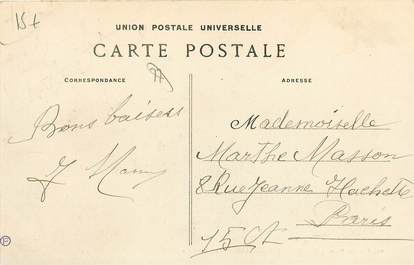 15t
UNION POSTALE UNIVERSELLE
CARTE POSTALE
CORRESPONDANCE
ADRESSE
Bons baisers
Mademoiselle
Marthe Masson
8 Rue Jeanne Hachette
Paris
15
P